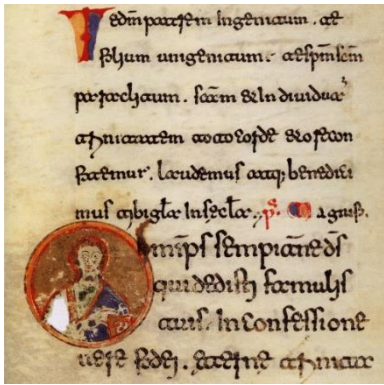 Te dm patrem Ingenitum. te
filium unigenitum. te spm scm
paraclitum. scam et Individuam
trinitatem toto corde et ore con
fitemur. laudemus atq; benedici
mus tibi gla In scla. ps. Magnus.
Omnps sempiterne ds
qui dedisti famulis
tuis. In Confessione
uere fidei. eterne